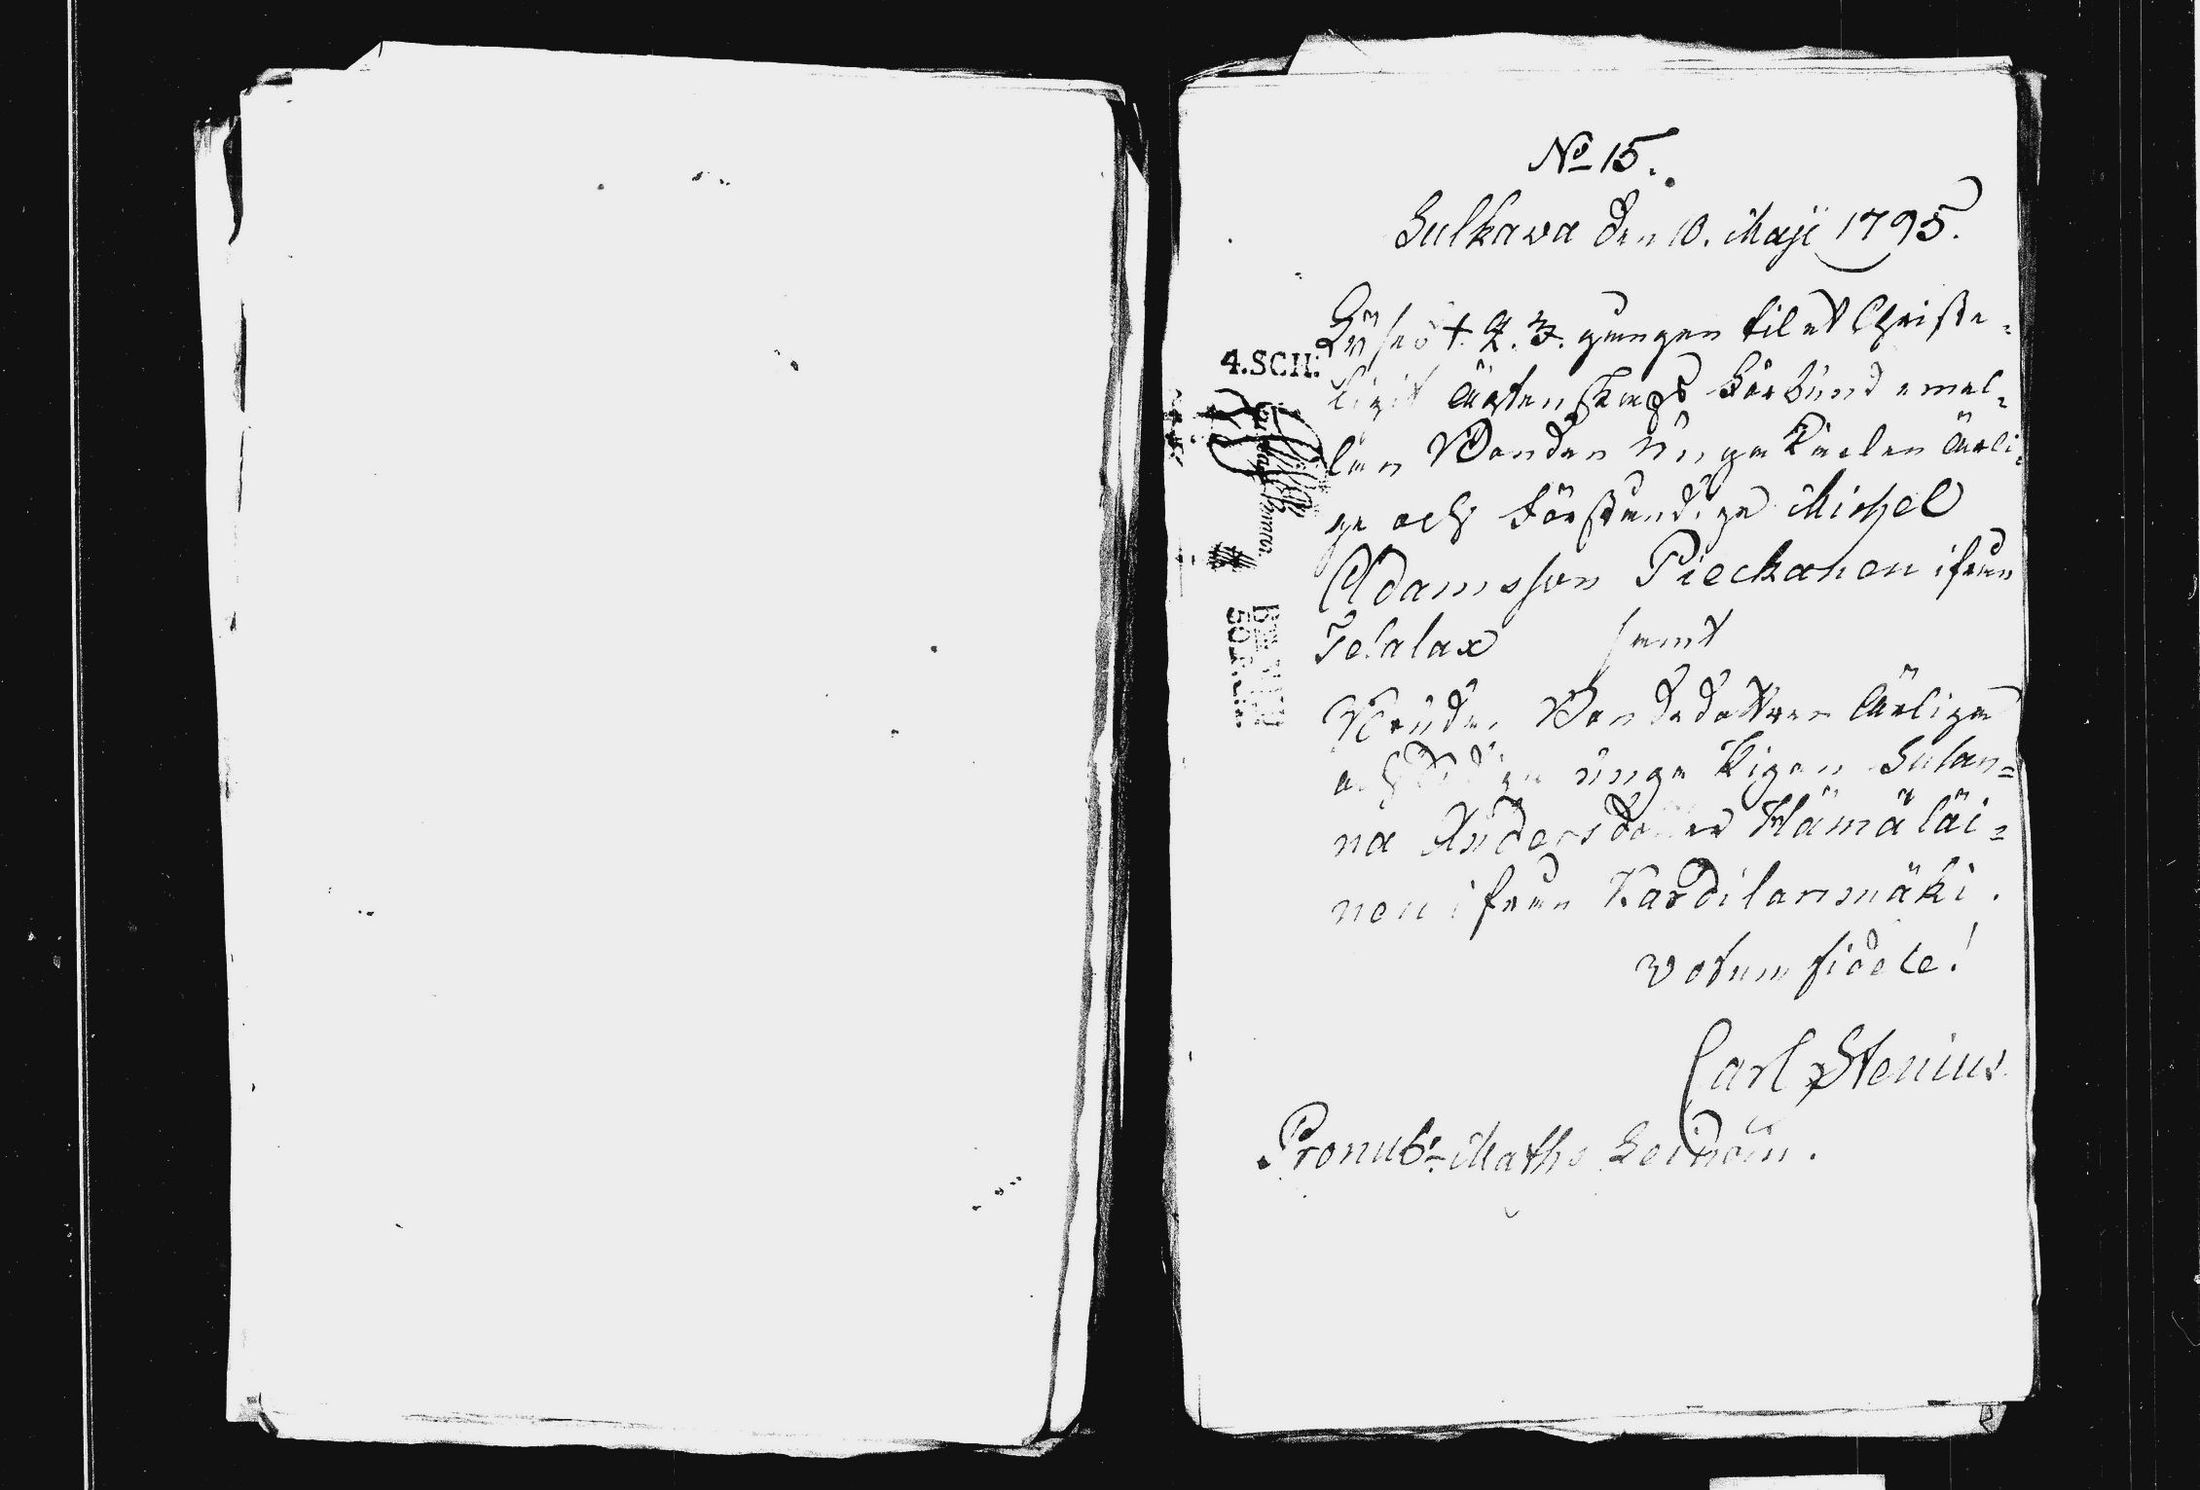 No 15.
Sulkawa den 10. Maji 1795.
Lyses 1. 2. 3. gången til et Christe-
4.SCH:
ligit Ägtenskaps Förbund emel-
lan Bonden Unga Karlen Ärli-
ge och Förståndige Michel
Adamsson Pieckanen ifrån
Telalax samt
Bruden Bondedottren Ärliga
och unga Pigan Susan-
na Andersdotter Hämäläi-
nen ifrån Kardilanmäki.
Votum fidele!
Carl Stenius
Pronub: Maths